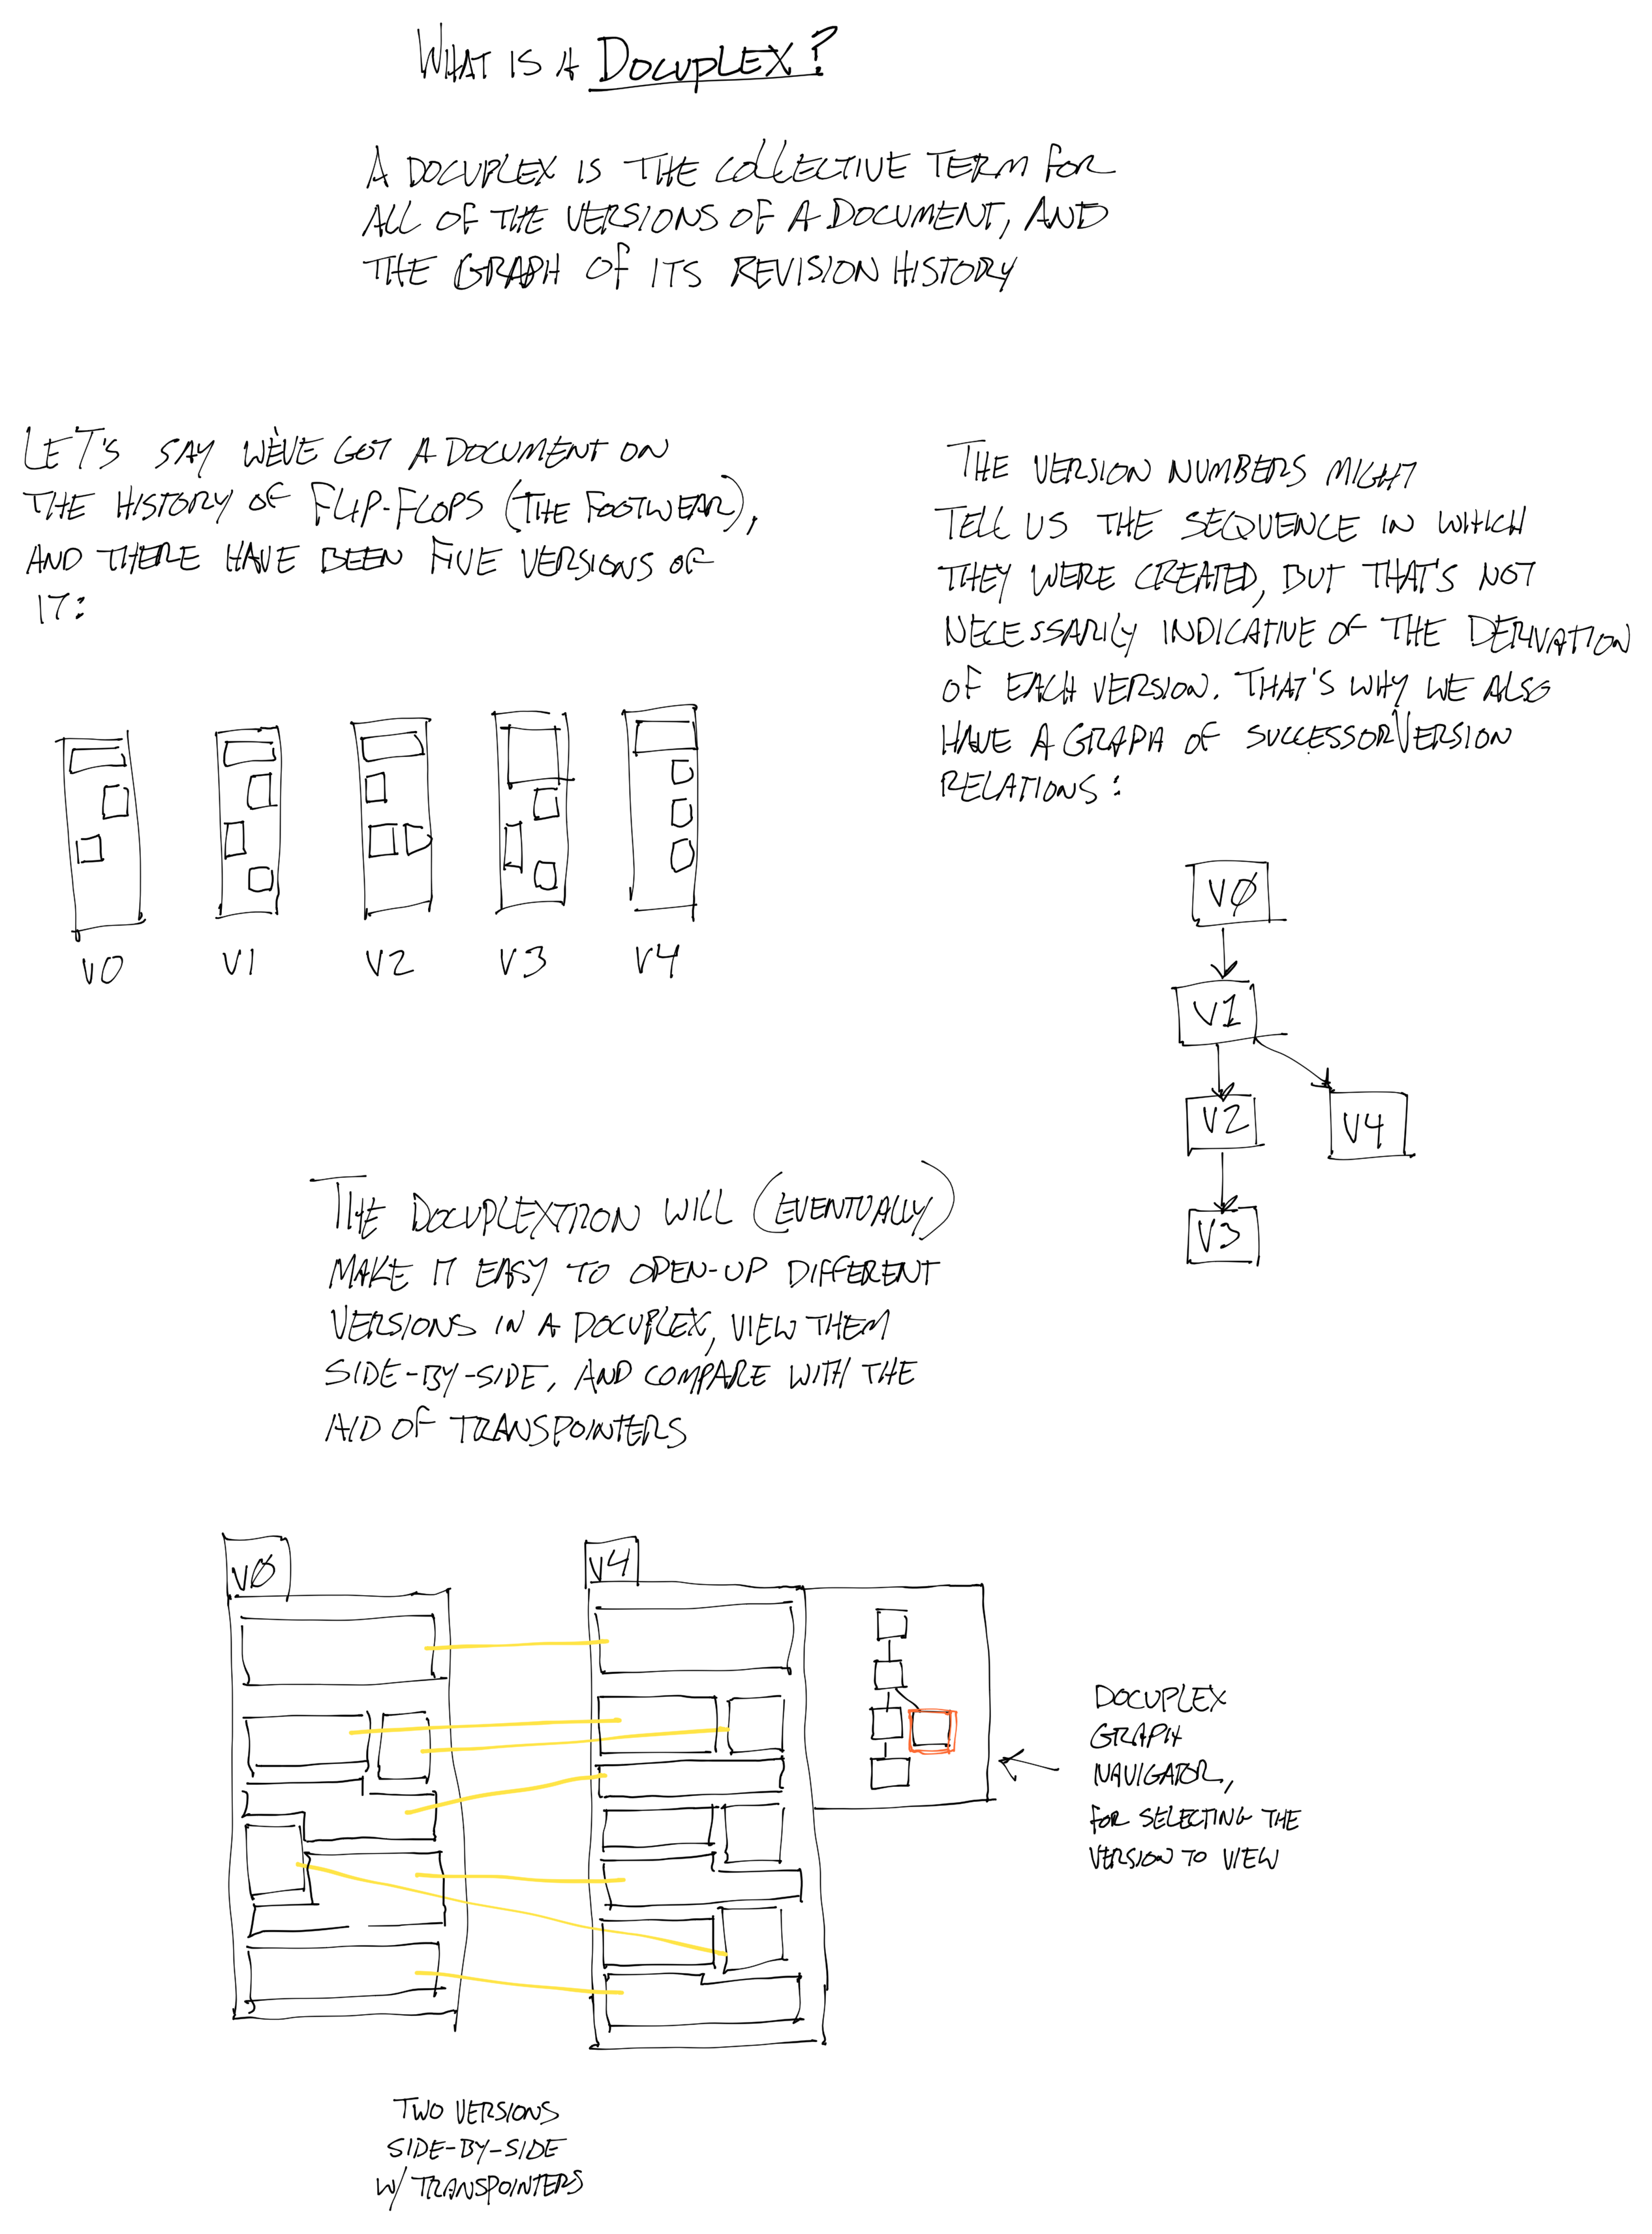 WHAT IS A DOCUPLEX?
A DOCUPLEX IS THE COLLECTIVE TERM FOR
ALL OF THE VERSIONS OF A DOCUMENT, AND
THE GRAPH OF ITS REVISION HISTORY
LET'S SAY WE'VE GOT A DOCUMENT ON
THE HISTORY OF FLIP-FLOPS (THE FOOTWEAR),
AND THERE HAVE BEEN FIVE VERSIONS OF
IT:
V0 V1 V2 V3 V4
THE VERSION NUMBERS MIGHT
TELL US THE SEQUENCE IN WHICH
THEY WERE CREATED, BUT THAT'S NOT
NECESSARILY INDICATIVE OF THE DERIVATION
OF EACH VERSION. THAT'S WHY WE ALSO
HAVE A GRAPH OF SUCCESSORVERSION
RELATIONS:
VØ
V1
V2
V4
V3
THE DOCUPLEXTRON WILL (EVENTUALLY)
MAKE IT EASY TO OPEN-UP DIFFERENT
VERSIONS IN A DOCUPLEX, VIEW THEM
SIDE-BY-SIDE, AND COMPARE WITH THE
AID OF TRANSPOINTERS
VØ
V4
DOCUPLEX
GRAPH
NAVIGATOR,
FOR SELECTING THE
VERSION TO VIEW
TWO VERSIONS
SIDE-BY-SIDE
W/ TRANSPOINTERS